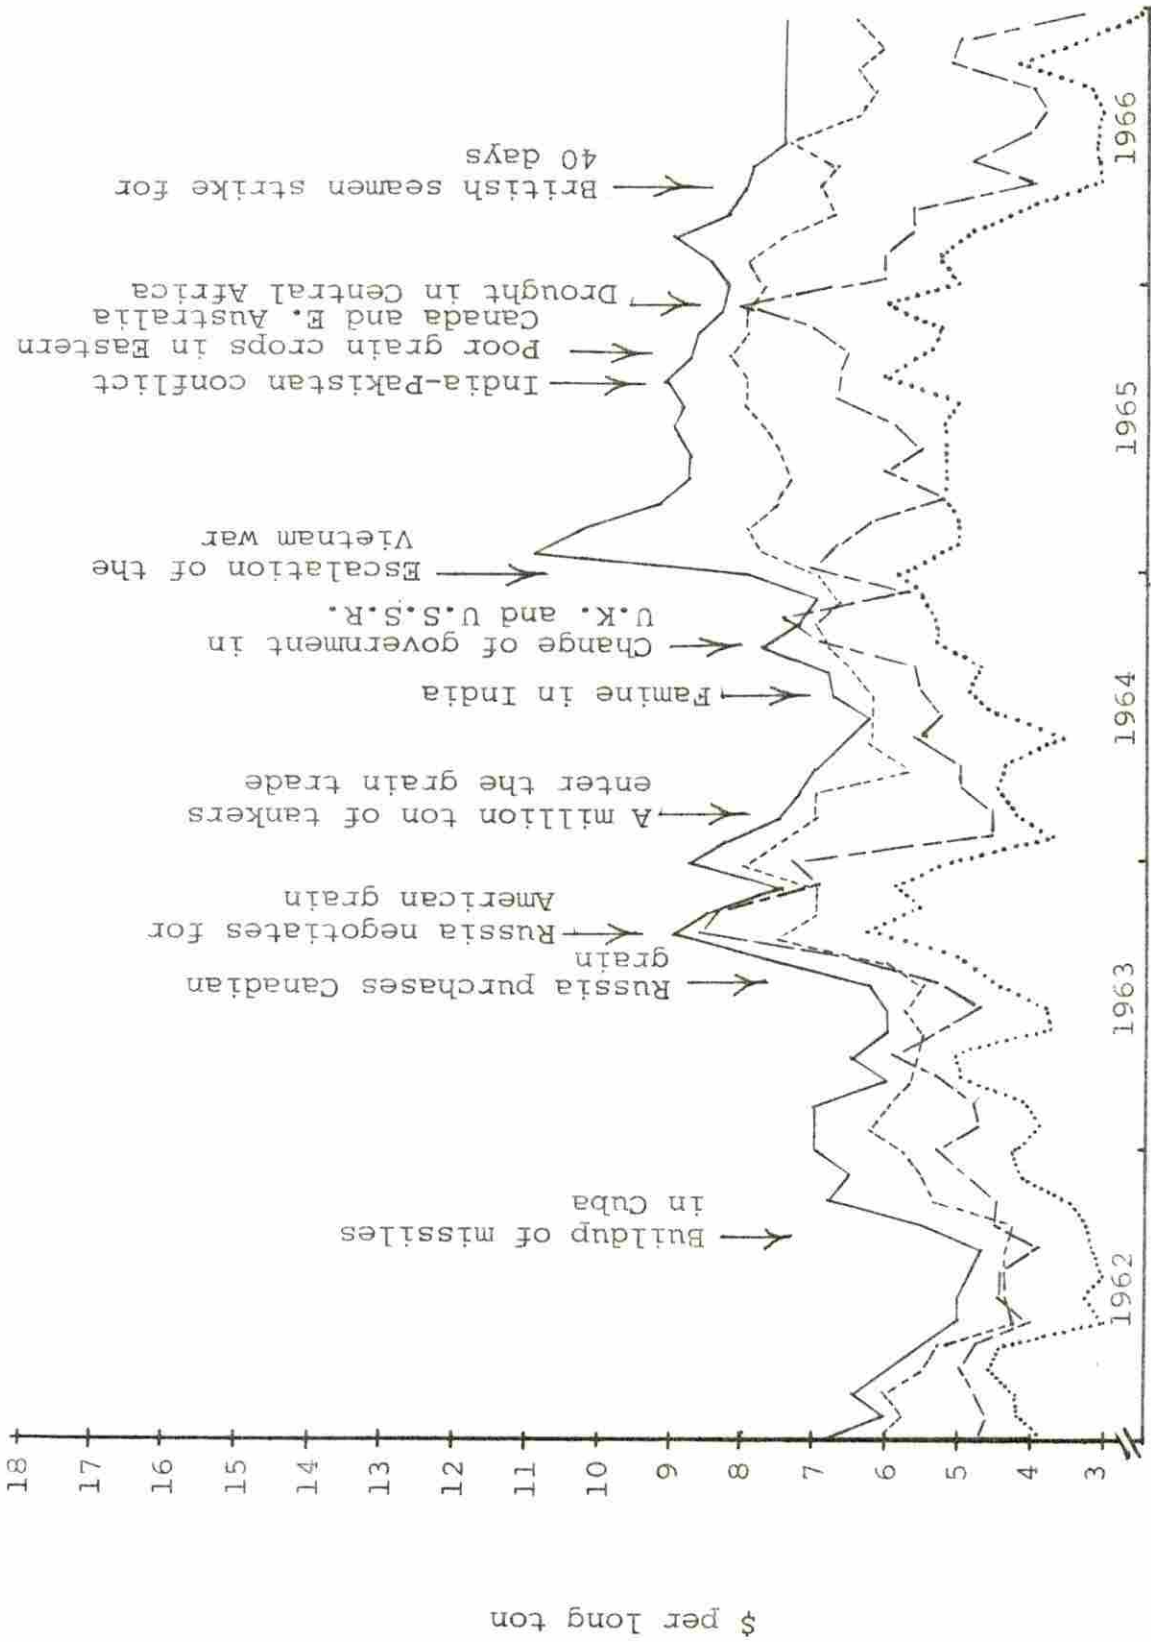 $ per long ton
18
17
16
15
14
13
12
11
10
9
8
7
6
5
4
3
1962
1963
1964
1965
1966
Buildup of missiles
in Cuba
Russia purchases Canadian
grain
Russia negotiates for
American grain
A million ton of tankers
enter the grain trade
Famine in India
Change of government in
U.K. and U.S.S.R.
Escalation of the
Vietnam war
India-Pakistan conflict
Poor grain crops in Eastern
Canada and E. Australia
Drought in Central Africa
British seamen strike for
40 days